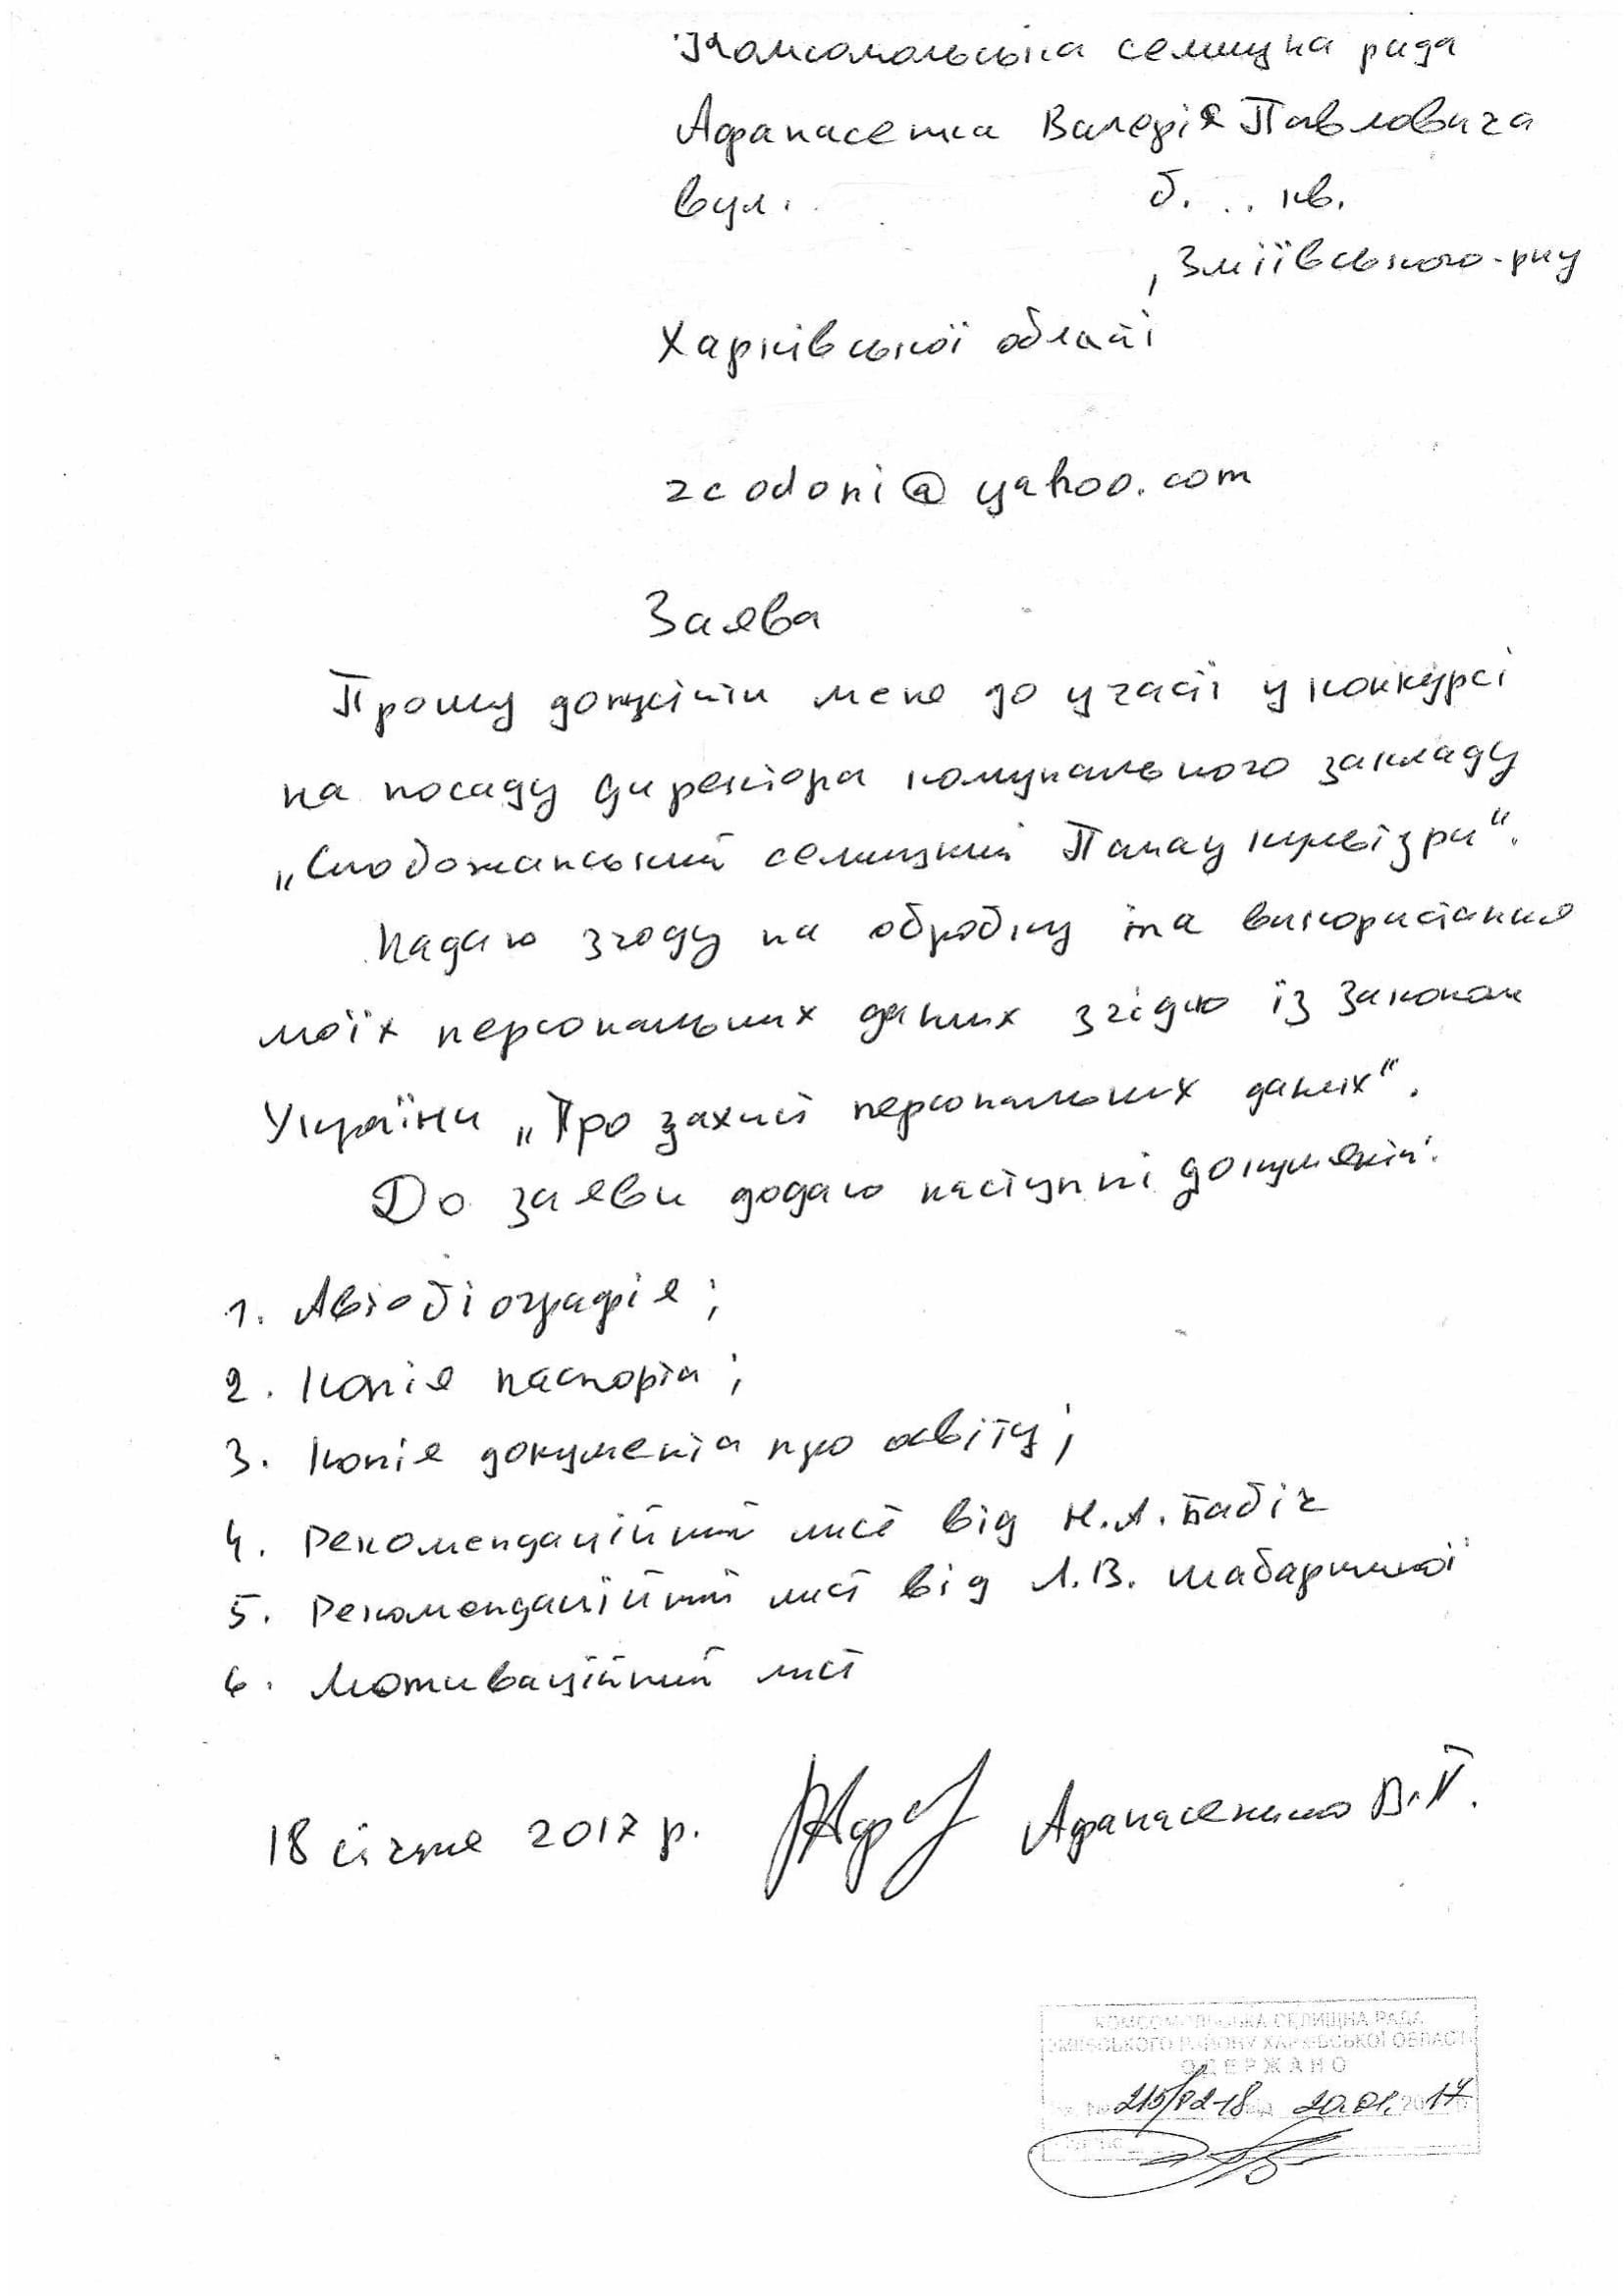 Комсомольська селищна рада
Афанасенка Валерія Павловича
вул. б. кв.
, Зміївського р-ну
Харківської області
zcodoni@yahoo.com
Заява
Прошу допустити мене до участі у конкурсі
на посаду директора комунального закладу
„Слобожанський селищний Палац культури“.
Надаю згоду на обробку та використання
моїх персональних даних згідно із Законом
України „Про захист персональних даних“.
До заяви додаю наступні документи:
1. Автобіографія;
2. Копія паспорта;
3. Копія документа про освіту;
4. Рекомендаційний лист від Н.А. Бабіч
5. Рекомендаційний лист від Л.В. Шабаринської
6. Мотиваційний лист
18 січня 2017 р. Афанасенко В.П.
КОМСОМОЛЬСЬКА СЕЛИЩНА РАДА
ЗМІЇВСЬКОГО РАЙОНУ ХАРКІВСЬКОЇ ОБЛАСТІ
ОДЕРЖАНО
№ 215/02-18 від 20.01.2017